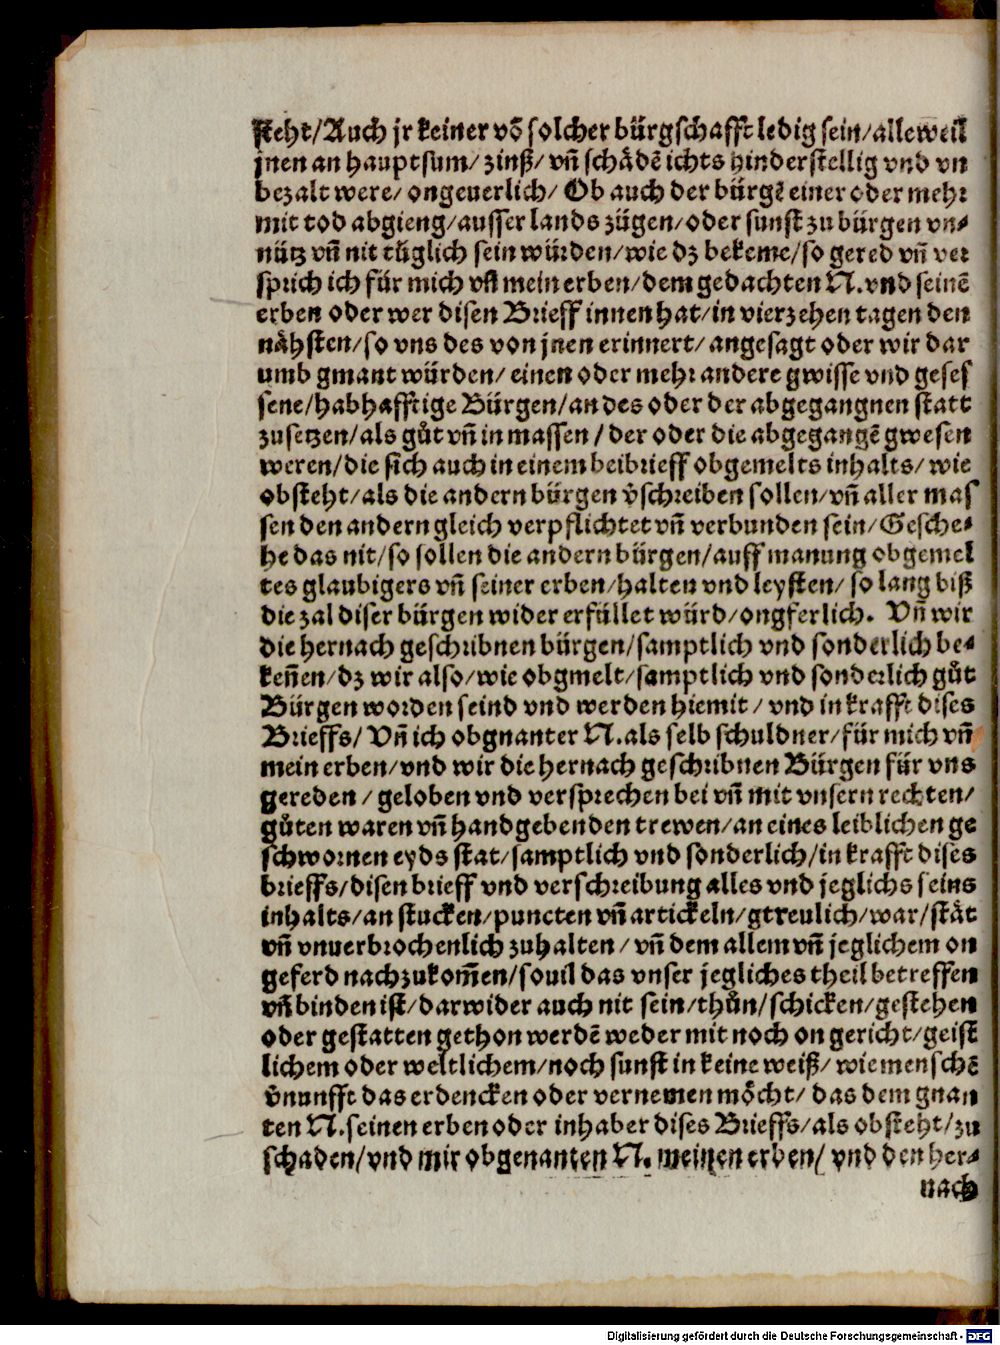 steht/Auch jr keiner võ solcher bürgschafft ledig sein/alleweil
jnen an hauptsum/zinß/vñ schådẽ ichts hinderstellig vnd vn
bezalt were/ongeuerlich/Ob auch der bürgẽ einer oder mehr
mit tod abgieng/ausser lands zügen/oder sunst zu bürgen vn-
nütz vñ nit tüglich sein würden/wie dz bekeme/so gered vñ ver
sprich ich für mich vñ mein erben/dem gedachten N.vnd seinẽ
erben oder wer disen Brieff innen hat/in vierzehen tagen den
nåhsten/so vns des von jnen erinnert/angesagt oder wir dar
umb gmant würden/einen oder mehr andere gwisse vnd geses
sene/habhafftige Bürgen/an des oder der abgegangnen statt
zusetzen/als gůt vñ in massen/der oder die abgegangẽ gwesen
weren/die sich auch in einem beibrieff obgemelts inhalts/wie
obsteht/als die andern bürgen v̄schreiben sollen/vñ aller mas
sen den andern gleich verpflichtet vñ verbunden sein/Gesche-
he das nit/so sollen die andern bürgen/auff manung obgemel
tes glaubigers vñ seiner erben/halten vnd leysten/so lang biß
die zal diser bürgen wider erfüllet würd/ongferlich. Vñ wir
die hernach geschribnen bürgen/samptlich vnd sonderlich be-
keñen/dz wir also/wie obgmelt/samptlich vnd sonderlich gůt
Bürgen worden seind vnd werden hiemit/vnd in krafft dises
Brieffs/Vñ ich obgnanter N.als selb schuldner/für mich vñ
mein erben/vnd wir die hernach geschribnen Bürgen für vns
gereden/geloben vnd versprechen bei vñ mit vnsern rechten/
gůten waren vñ handgebenden trewen/an eines leiblichen ge
schwornen eyds stat/samptlich vnd sonderlich/in krafft dises
brieffs/disen brieff vnd verschreibung alles vnd jeglichs seins
inhalts/an stucken/puncten vñ artickeln/gtreulich/war/ståt
vñ vnuerbrochenlich zuhalten/vñ dem allem vñ jeglichem on
geferd nachzukom̃en/souil das vnser jegliches theil betreffen
vñ binden ist/darwider auch nit sein/thůn/schicken/gestehen
oder gestatten gethon werdẽ weder mit noch on gericht/geist
lichem oder weltlichem/noch sunst in keine weiß/wie menschẽ
v̄nunfft das erdencken oder vernemen möcht/das dem gnan
ten N.seinen erben oder inhaber dises Brieffs/als obsteht/zu
schaden/vnd mir obgenanten N. meinen erben/vnd den her-
nach
Digitalisierung gefördert durch die Deutsche Forschungsgemeinschaft - DFG